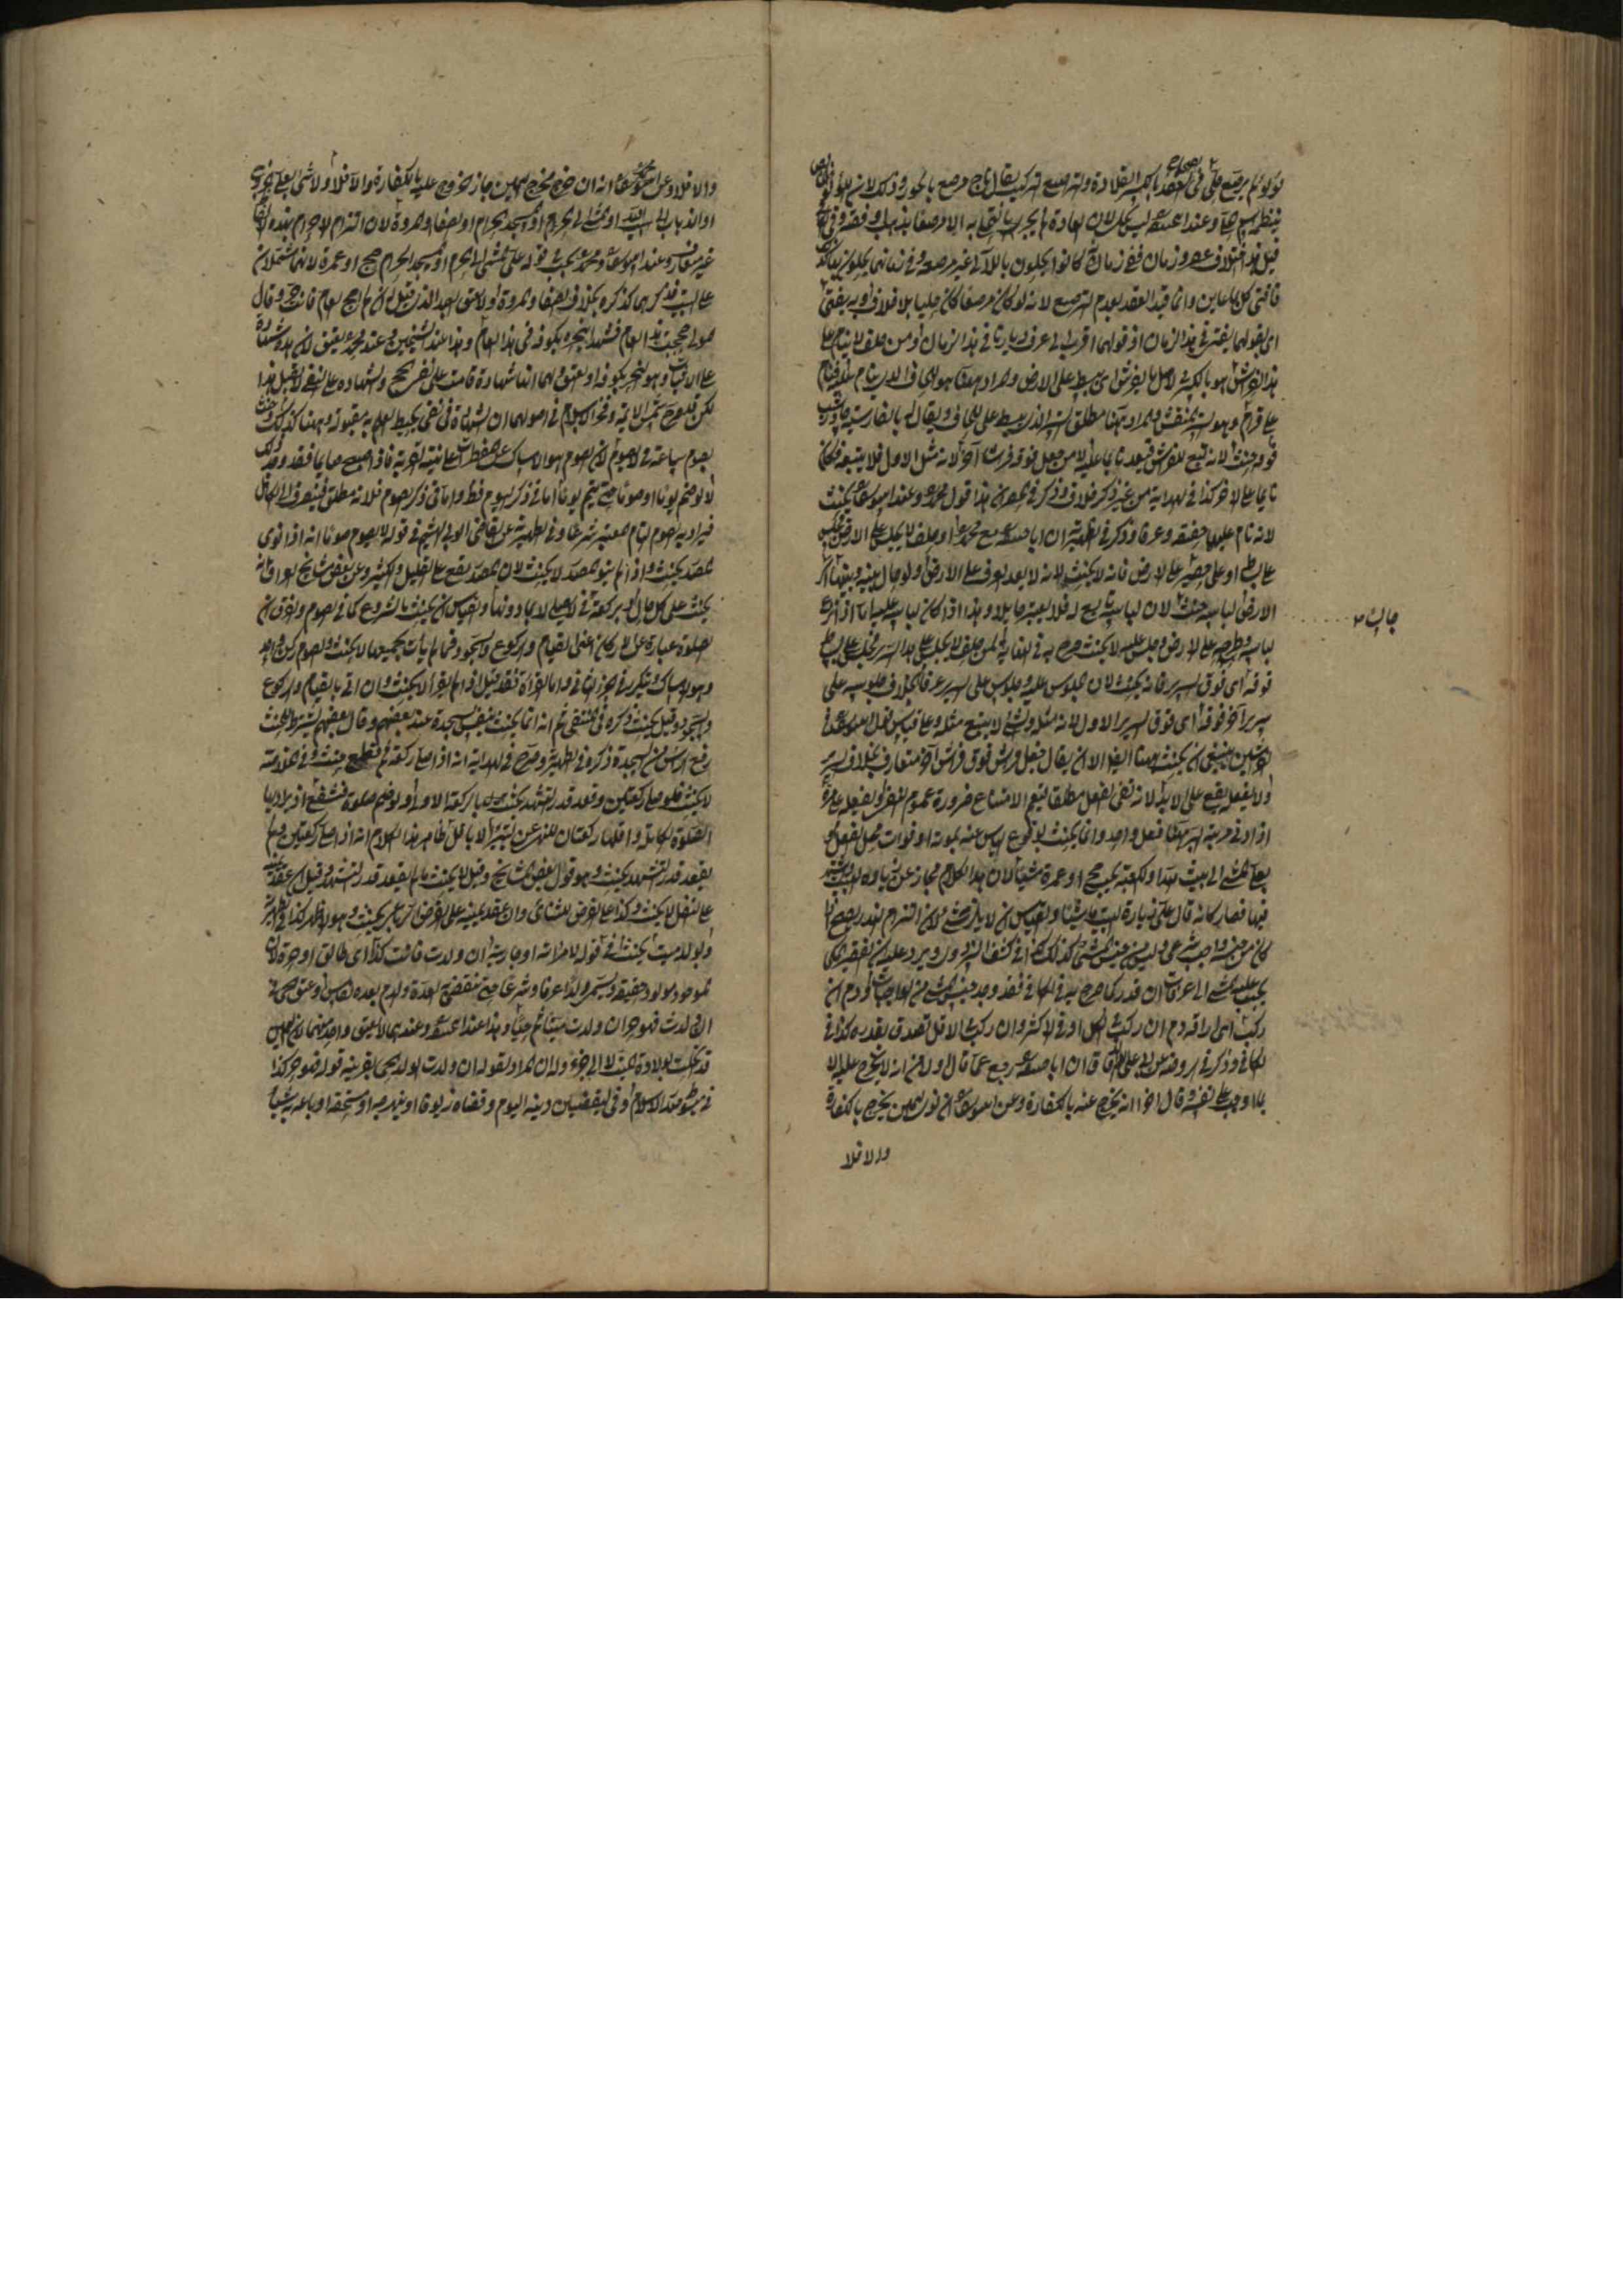 لؤلؤ لم يرصع حلي في العقد بالكسر القلادة والترصيع التركيب يقال تاج مرصع بالجواهر وذلك لانه
وعند ابي حنيفة ليس بحلي لان العادة لم يجر بالتحلي به الا مرصعا بذهب او فضة
قيل هذا اختلاف عصر وزمان ففي زمانه كانوا لا يحلون باللآلي غير مرصعة وفي زمانهما يحلون
فافتى كل بما عاين وانما قيد العقد بعدم الترصيع لانه لو كان مرصعا كان حليا بلا خلاف وبه يفتى
اي بقولهما يفتى في هذا الزمان اذ قولهما اقرب الى عرف ديارنا في هذا الزمان ومن حلف لا ينام على
هذا الفراش هو بالكسر في الاصل ما يفرش اي يبسط على الارض والمراد ههنا هو
على قرام وهو الستر المنقش والمراد ههنا مطلق الستر الذي يبسط على اللحاف ويقال له بالفارسية
فوقه حنث لانه تبع للفراش فيعد نائما عليه لا من جعل فوقه فراشا آخر لانه مثل الاول فلا يتبعه فكان
نائما على الآخر كذا في الهداية من غير ذكر خلاف وذكر في ان هذا قول محمد وعند ابي يوسف يحنث
لانه نام عليهما حقيقة وعرفا وذكر في الظهيرية ان ابا حنيفة مع محمد او حلف لا يجلس على الارض فجلس
على بساط او على حصير على الارض فانه لا يحنث لانه لا يعد في العرف على الارض ولو حال بينه وبينها اي
الارض لباسه حنث لان لباسه تابع له فلا يعتبر حايلا وهذا اذا كان لباسه عليه اما اذا نزع
لباسه وطرحه على الارض وجلس عليه لا يحنث صرح به في الغاية كمن حلف لا يجلس على هذا السرير فجلس على بساط
فوقه اي فوق السرير فانه يحنث لان الجلوس عليه جلوس على السرير عرفا بخلاف جلوسه على
سرير آخر فوقه اي فوق السرير الاول لانه مثله والشيء لا يتبع مثله وعلى قياس قول ابي يوسف في
الفراشين ينبغي ان يحنث ههنا ايضا الا ان يقال جعل فراش فوق فراش آخر متعارف بخلاف السرير
ولا يفعله يقع على الابد لانه نفى الفعل مطلقا فيعم الامتناع ضرورة عموم النفي وليفعله على مرة
اذ في جزئية المرة فعل واحد وانما يحنث بوقوع الياس عنه بموته او فوات محل الفعل
بعلي المشي الى بيت الله او الكعبة يجب حج او عمرة مشيا لان هذا الكلام مجاز عن زيارة البيت
فيها فصار كانه قال علي زيارة البيت ماشيا والقياس ان لا يلزم شيء لان التزام النذر يصح اذا
كان من جنسه واجب شرعي وليس من جنس المشي كذلك كذا في كشف البزدوي ويرد عليه ان الفقير المكي
يجب عليه المشي الى عرفات ان قدر كما صرح به في الكافي فقد وجد جنس المشي من الواجبات ودم ان
ركب اي اراقة دم ان ركب الكل او في الاكثر وان ركب الاقل تصدق بقدره كذا في
الكافي وذكر في الروضة عن ابي علي الدقاق ان ابا حنيفة رجع عما قال ولا من انه لا يخرج عليه الا
بما اوجب على نفسه وقال اخرا انه يخرج عنه بالكفارة وعن ابي يوسف ان نوى اليمين يخرج بالكفارة
والا فلا
جالس
والا فلا وعن ابي يوسف انه ان خرج مخرج اليمين جاز خروج عليه بالكفارة والا فلا ولا شيء بعلي الخروج
او الذهاب الى بيت الله او المشي الى الحرم او المسجد الحرام او الصفا والمروة لان التزام الاحرام بهذه الالفاظ
غير متعارف وعند ابي يوسف ومحمد يجب في قوله علي المشي الى الحرم او المسجد الحرام حج او عمرة لانهما يشتملان
على البيت فذكرهما كذكره بخلاف الصفا والمروة ولا يعتق عبد الذي قيل له ان لم احج العام فانت حر وقال
المولى حججت هذا العام فشهدا بنحره بكوفة في هذا العام وهذا عند الشيخين وعند محمد يعتق لان هذه شهادة
على الاثبات وهو النحر بكوفة او يعتق ولهما انها شهادة قامت على نفي الحج والشهادة على النفي لا تقبل هذا
لكن قد صرح شمس الائمة وفخر الاسلام في اصولهما ان الشهادة في نفي يحيط العلم به مقبولة وههنا كذلك وحنث
بصوم ساعة في لا يصوم لان الصوم هو الامساك عن المفطرات على نية القربة فاذا اصبح صايما فقد وجد ذلك
لا لو ضم يوما او صوما حتى يتم يوما اما في ذكر اليوم فظ واما في ذكر الصوم فلانه مطلق فينصرف الى الكامل
فيراد به الصوم التام المعتبر شرعا وفي الظهيرية عن القاضي ابو الهيثم في قوله لا يصوم صوما انه اذا نوى
المصدر يحنث واذا لم ينو المصدر لا يحنث لان المصدر يقع على القليل والكثير وعن بعض مشايخ العراق انه
يحنث على كل حال وبركعة في لا يصلي لا بما دونها والقياس ان يحنث بالشروع كما في الصوم والفرق ان
الصلوة عبارة عن الاركان اعني القيام والركوع والسجود فما لم يأت بجميعها لا يحنث والصوم ركن واحد
وهو الامساك ويتكرر في الجزء الثاني واما القراءة فقد قيل اذا لم يقرأ لا يحنث وان اتى بالقيام والركوع
والسجود وقيل يحنث ذكره في المنتقى ثم انه انما يحنث بنفس السجدة عند بعضهم وقال بعضهم يشترط للحنث
رفع الراس من السجدة ذكره في الظهيرية وصرح في الهداية انه اذا صلى ركعة ثم قطع حنث وفي الخلاصة
لا يحنث فلو صلى ركعتين وقعد قدر التشهد يحنث بالركعة الاولى ولو ضم صلوة فبشفع اذ يراد بها
الصلوة الكاملة واقلها ركعتان للنهي عن البتيراء لا باقل ظاهر هذا الكلام انه اذا صلى ركعتين ولم
يقعد قدر التشهد يحنث وهو قول بعض المشايخ وقيل لا يحنث ما لم يقعد قدر التشهد وقيل ان عقد يمينه
على النفل لا يحنث وكذا على الفرض المثنائي وان عقد يمينه على الفرض الرباعي يحنث وهو الاظهر كذا في الظهيرية
وبولد ميت يحنث في قوله لامراته او جاريته ان ولدت فانت كذا اي طالق او حرة لان
الموجود مولود حقيقة ويسمى ولدا عرفا وشرعا حتى تنقضي به العدة والدم بعده نفاس وعتق الحي في
ان ولدت فهو حر ان ولدت ميتا ثم حيا وهذا عند ابي حنيفة وعندهما لا يعتق واحد منهما لان اليمين
قد انحلت بولادة الميت لا الى جزاء وله ان المراد بقوله ان ولدت الولد الحي بقرينة قوله فهو حر كذا
في مبسوط شيخ الاسلام وفي ليقضين دينه اليوم وقضاه زيوفا او نبهرجة او مستحقة او باعه به شيئا